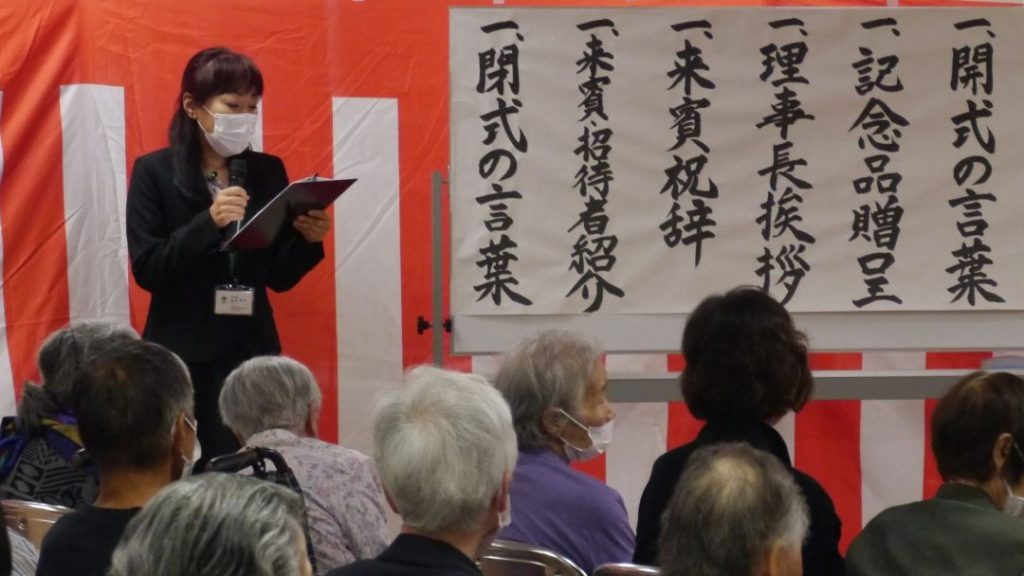 一、開式の言葉
一、記念品贈呈
一、理事長挨拶
一、来賓祝辞
一、来賓・招待者紹介
一、閉式の言葉